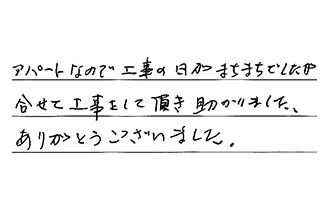 アパートなので工事の日がまちまちでしたが
合せて工事をして頂き助かりました、
ありがとうございました。